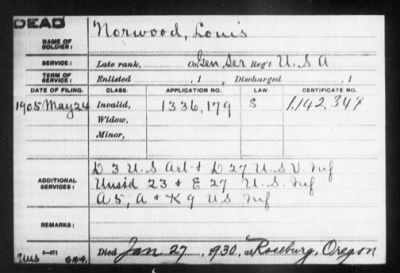 DEAD
NAME OF SOLDIER: Norwood, Louis
SERVICE: Late rank, Gen Ser Reg't U.S.A
TERM OF SERVICE: Enlisted , 1 , Discharged , 1
DATE OF FILING. CLASS. APPLICATION NO. LAW. CERTIFICATE NO.
1905 May 24 Invalid, 1336,179 S 1,142,348
Widow,
Minor,
ADDITIONAL SERVICES: D 3 U.S. Art + D 27 U.S.V Inf
Unasd 23 + E 27 U.S. Inf
A 5, A + K 9 US Inf
REMARKS:
Died Jan 27, 1930, at Roseburg, Oregon